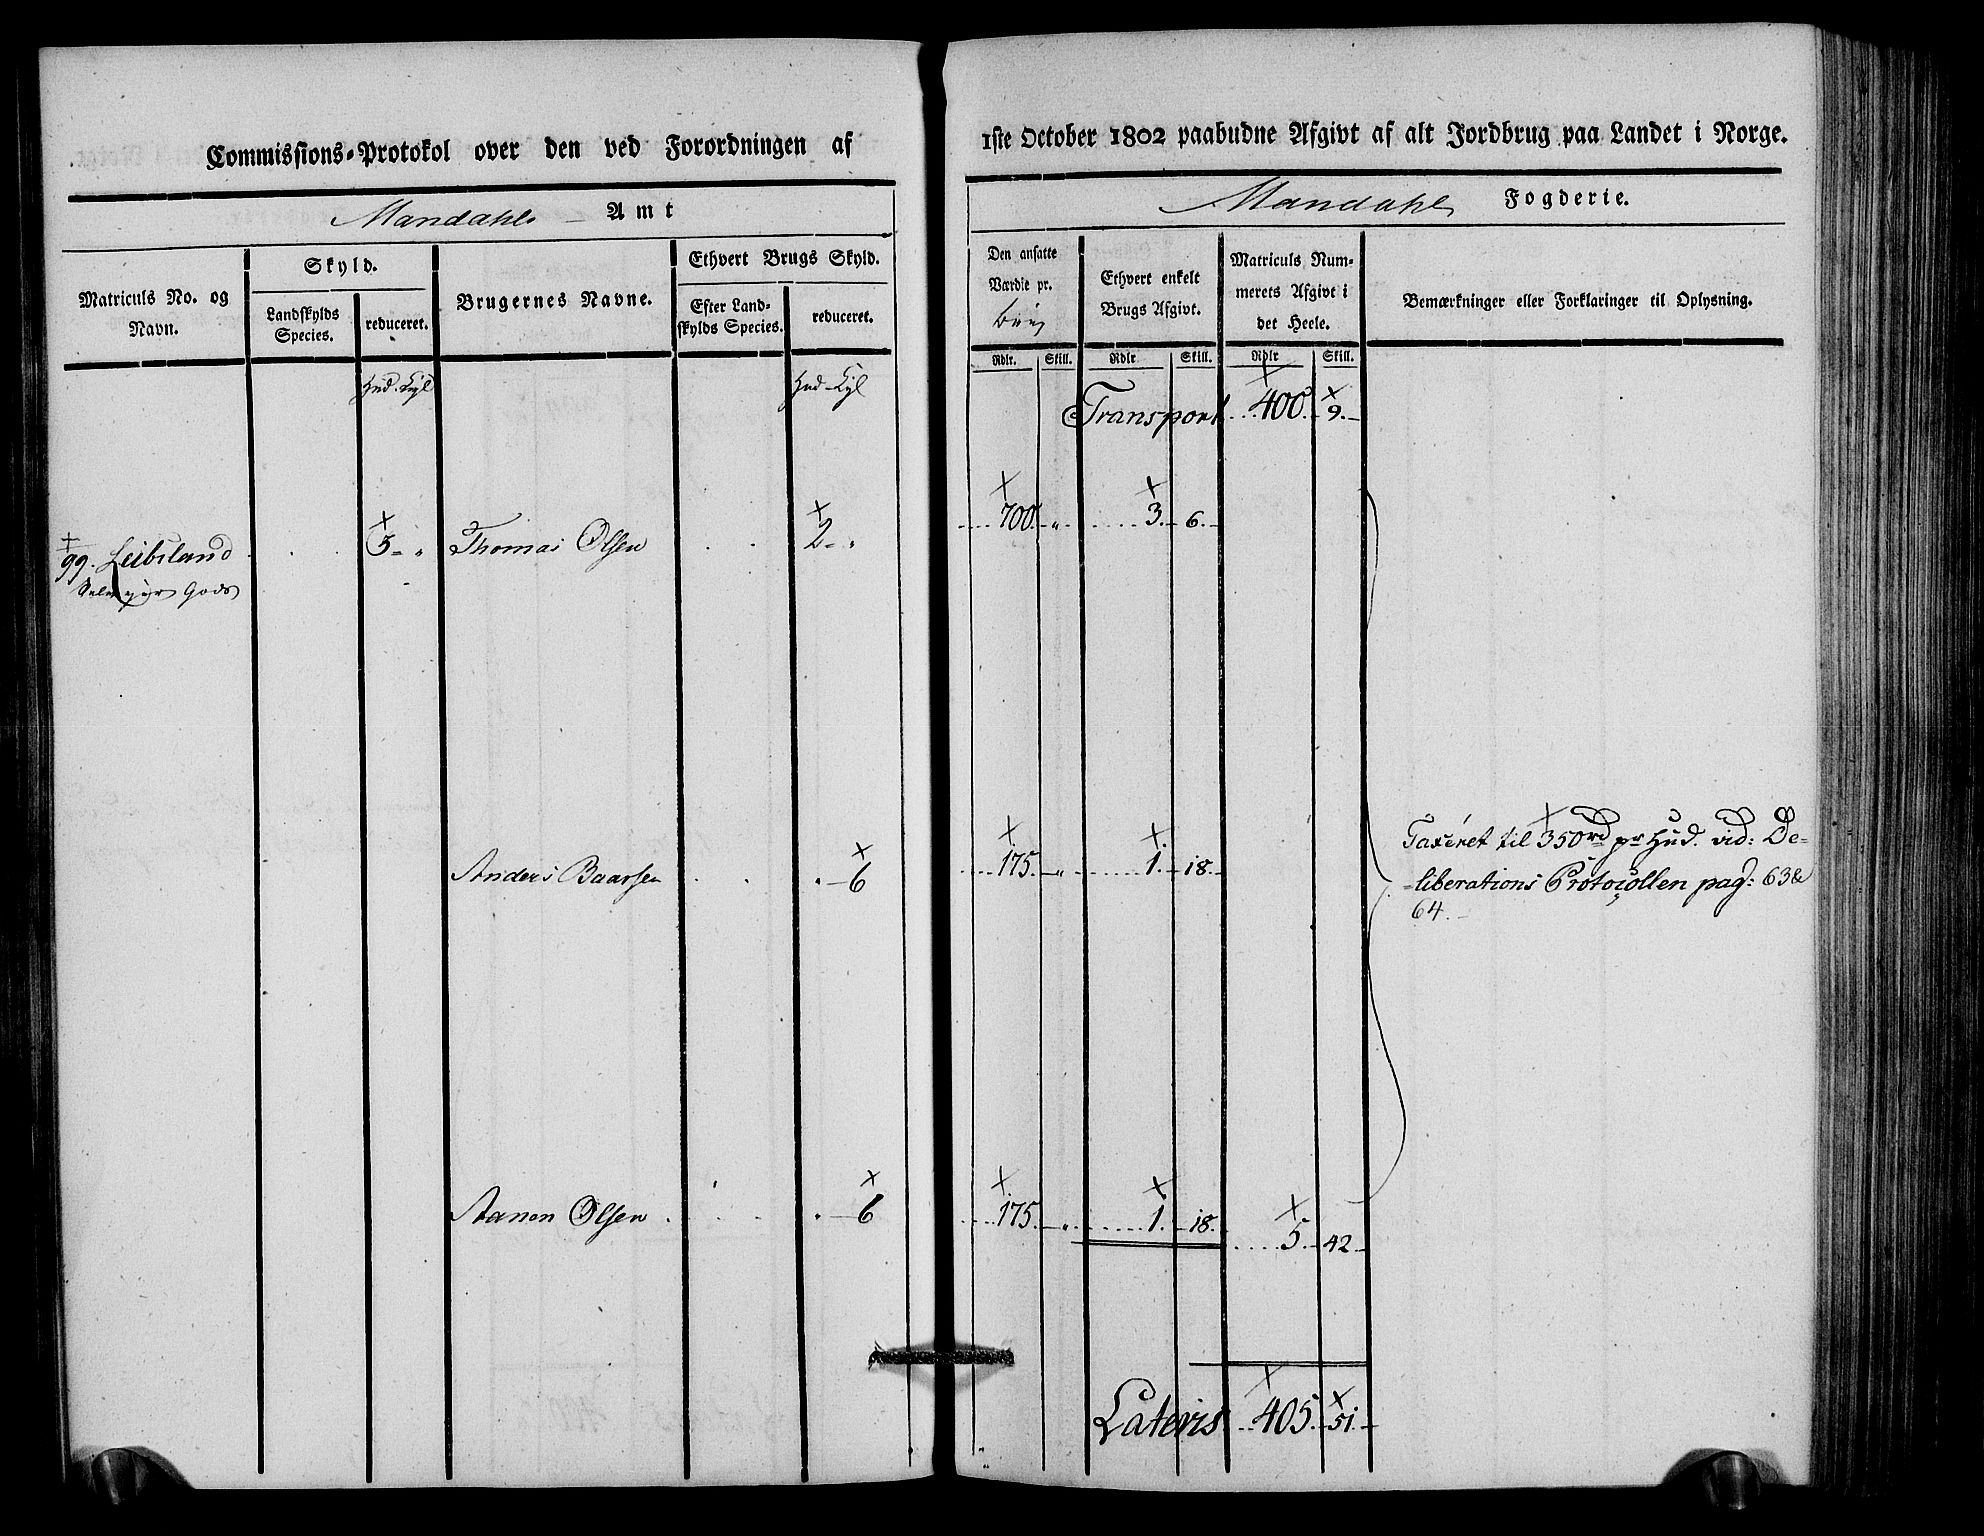 Commissions-Protokol over den ved Forordningen af
Mandahls Amt
Matriculs No. og Navn.
Skyld.
Landskylds Species.
reduceret.
Brugernes Navne.
Ethvert Brugs Skyld.
Efter Landskylds Species.
reduceret.
Hud. Kpl
Hud. Kpl
99. Leibsland
Gods
3 - "
Thomas Olsen
2 - "
Anders Baarsen
" - 6
Aanon Olsen
" - 6
1ste October 1802 paabudne Afgivt af alt Jordbrug paa Landet i Norge.
Mandahls Fogderie.
Den ansatte Værdie pr.
Brug
Ethvert enkelt Brugs Afgivt.
Matriculs Nummerets Afgivt i det Heele.
Bemærkninger eller Forklaringer til Oplysning.
Rdlr. Skill. Rdlr Skill. Rdlr Skill.
Transport 400. 9.
700. " 3. 6.
175. " 1. 18.
Taxeret til 350rd pr Hud. vid: De-
liberations Protocollen pag: 63 &
64.
175. " 1. 18.
5. 42
Lateris 405. 51.